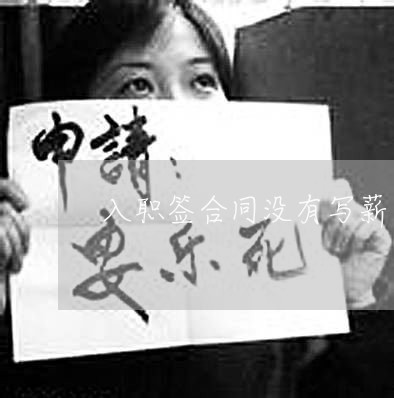 申請：
入职签合同没有写薪
安乐死